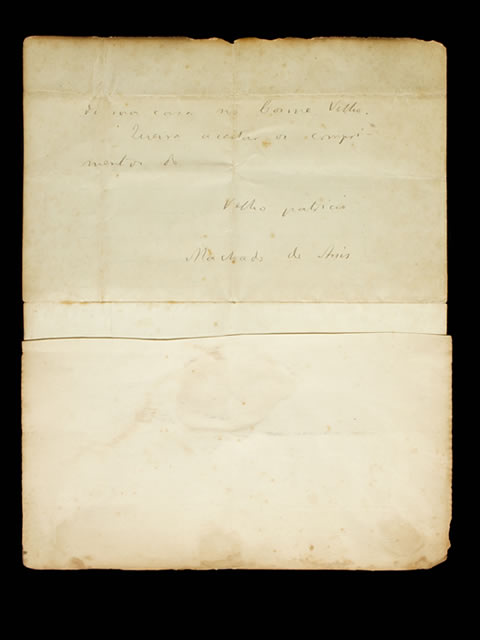 de sua casa no Cosme Velho.
Queira aceitar os compri-
mentos do
Velho patricio
Machado de Assis